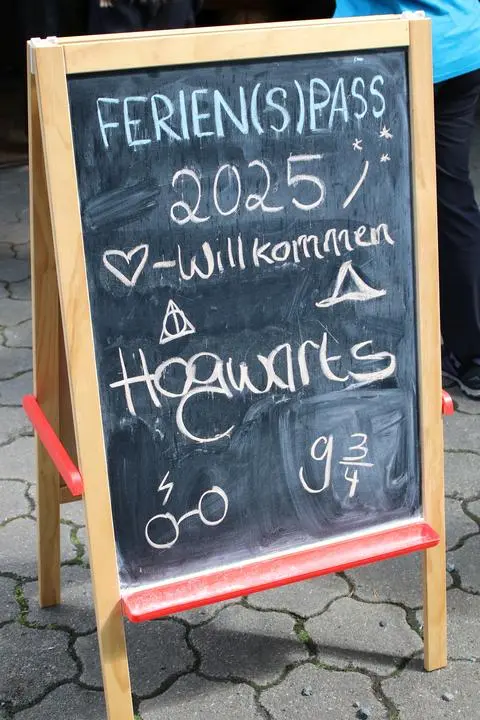 FERIEN(S)PASS
2025
♡-Willkommen
Hogwarts
9 3/4